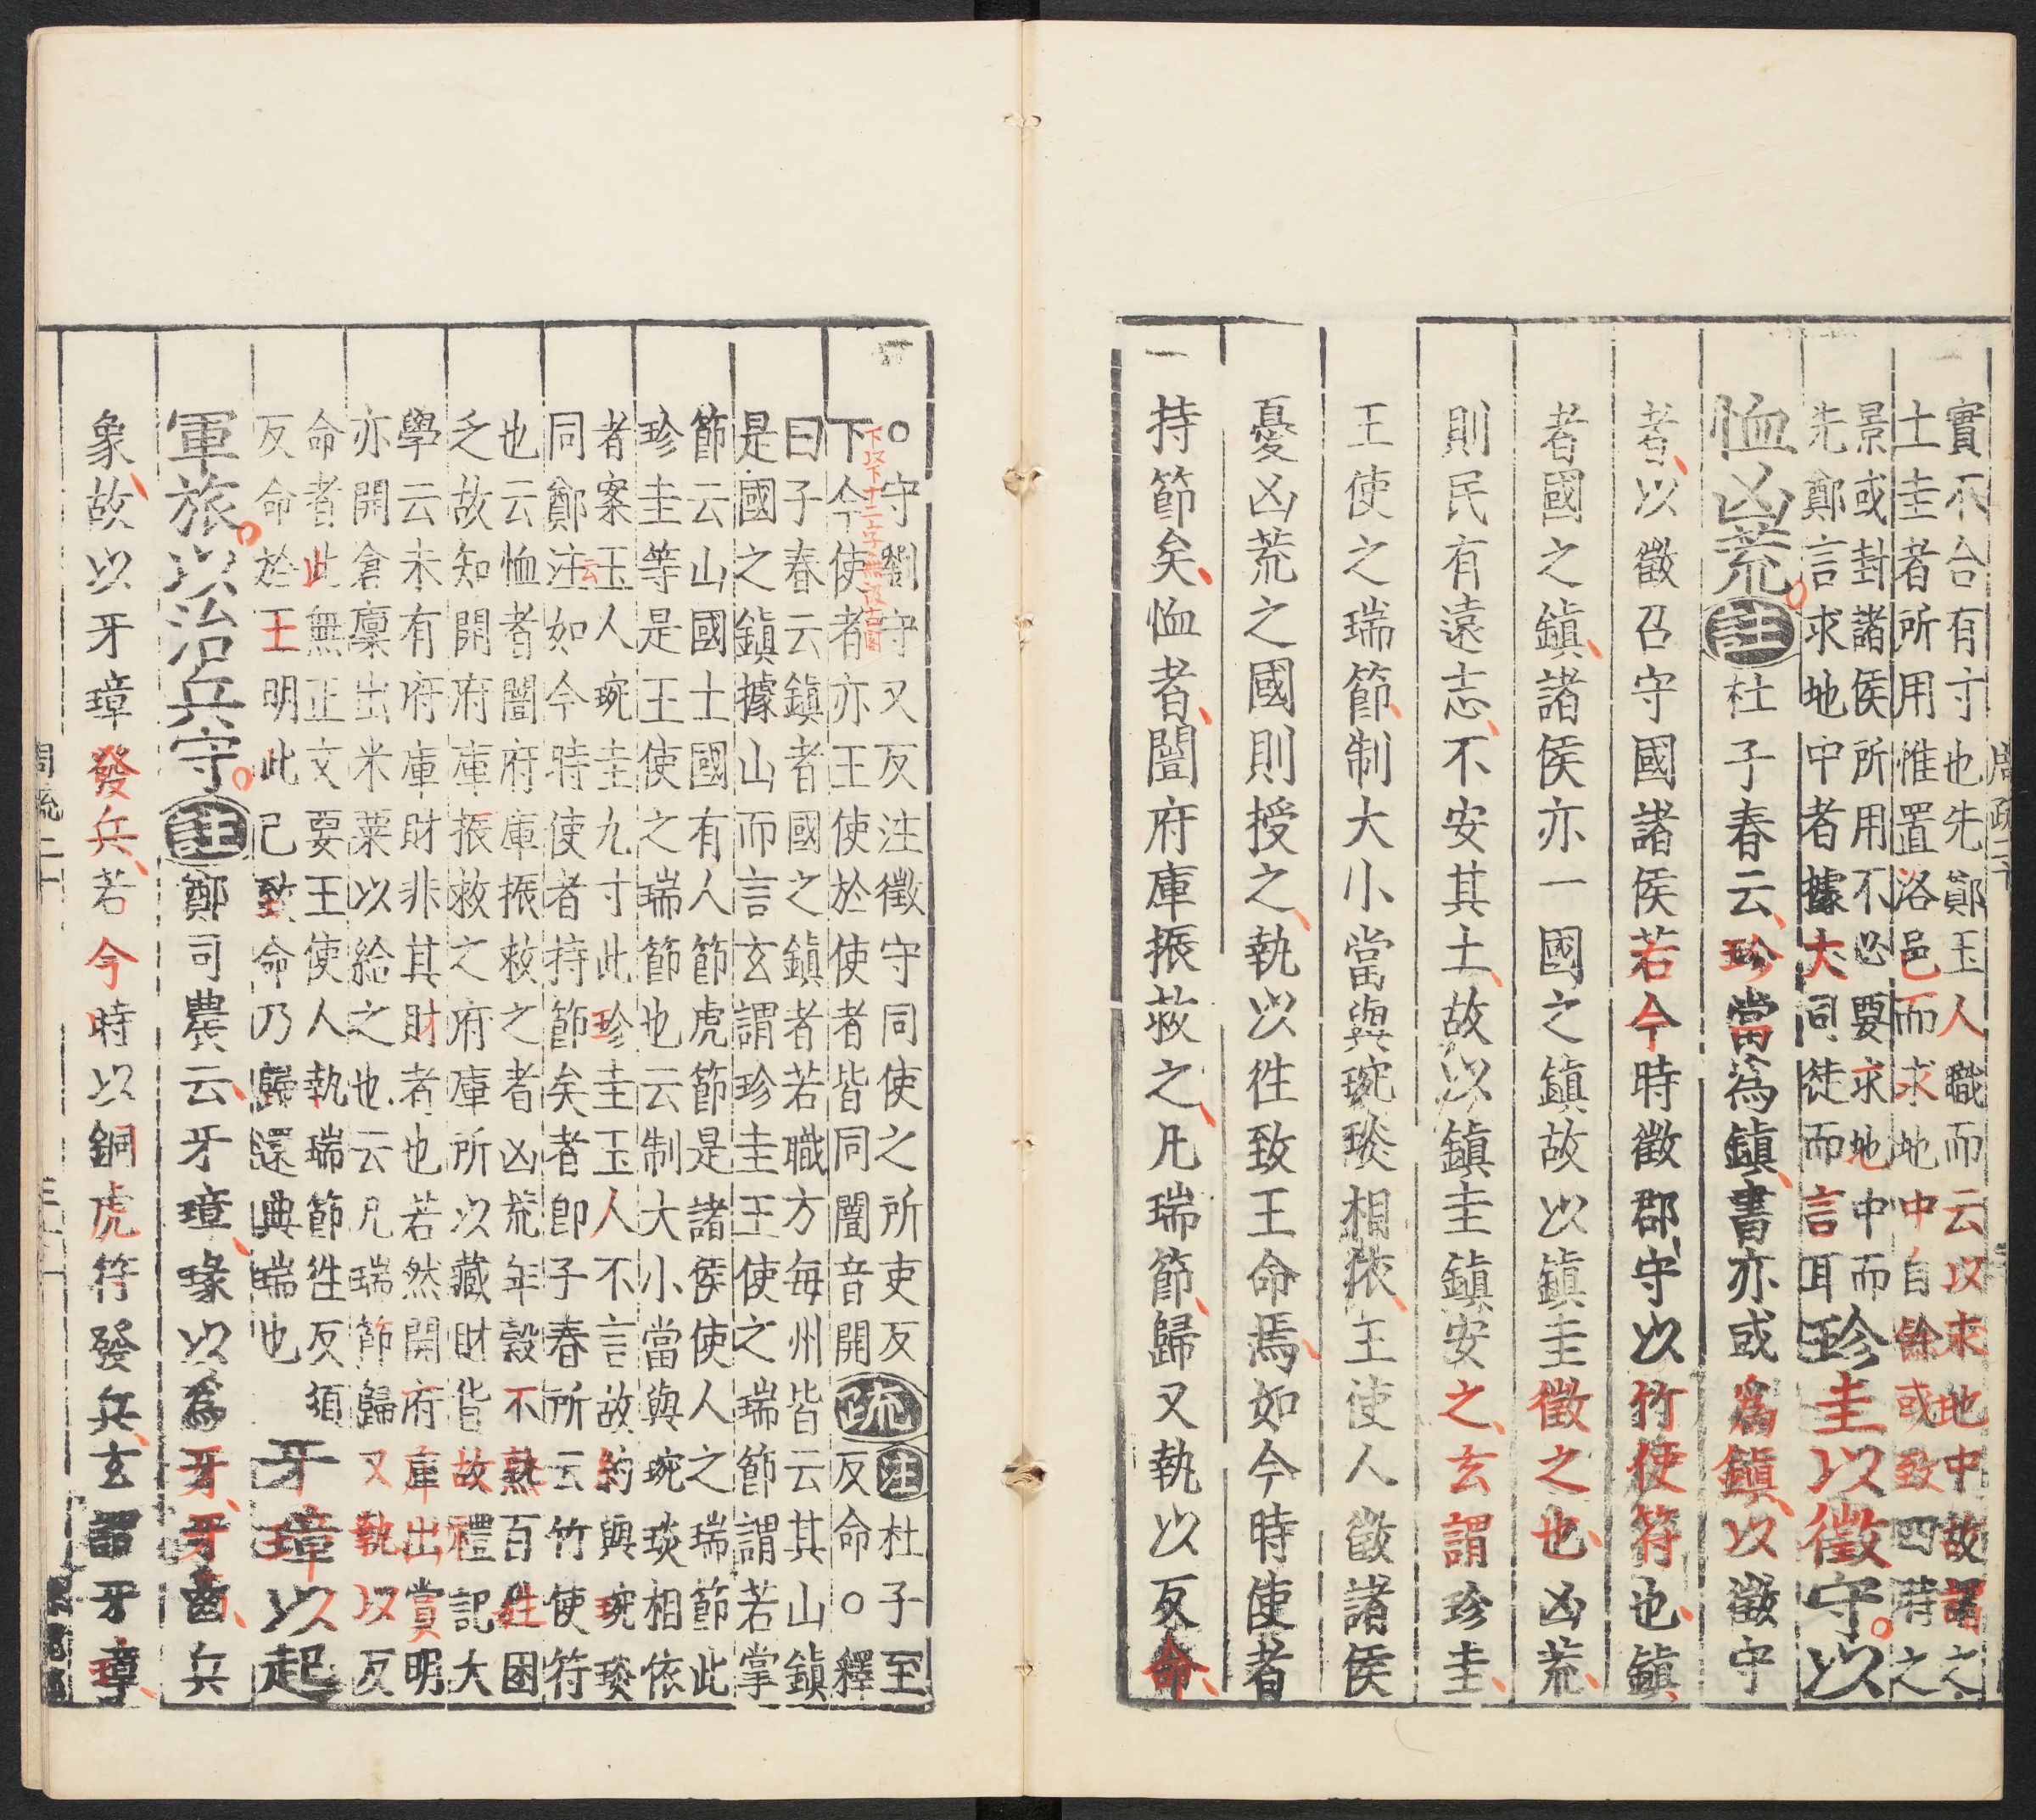 實不合有寸也先鄭玉人職而云以求地中故諸文
土圭者所用惟置洛邑而求地中自餘或致四時之
景或封諸侯所用不必要求地中而
先鄭言求地中者據大司徒而言耳
珍圭以徵守以
恤凶荒註杜子春云珍當為鎮書亦或為鎮以徵守
者以徵召守國諸侯若今時徵郡守以竹使符也鎮
者國之鎮諸侯亦一國之鎮故以鎮圭徵之也凶荒
則民有遠志不安其土故以鎮圭鎮安之玄謂珍圭
王使之瑞節制大小當與琬琰相依王使人徵諸侯
憂凶荒之國則授之執以徃致王命焉如今時使者
持節矣恤者闓府庫振救之凡瑞節歸又執以反命
○守劉守又反注徵守同使之所吏反
下今使者亦王使於使者皆同闓音開
下以下十二字無汲古閣
疏注杜子至
反命○釋
曰子春云鎮者國之鎮者若職方每州皆云其山鎮
是國之鎮據山而言玄謂珍圭王使之瑞節謂若掌
節云山國土國有人節虎節是諸侯使人之瑞節此
珍圭等是王使之瑞節也云制大小當與琬琰相依
者案玉人琬圭九寸此珍圭玉人不言故約與琬琰
同鄭注云如今時使者持節矣者即子春所云竹使符
也云恤者闓府庫振救之者凶荒年穀不熟百姓困
乏故知開府庫振救之府庫所以藏財貨故禮記大
學云未有府庫財非其財者也若然開府庫出賞明
亦開倉廩出米粟以給之也云凡瑞節歸又執以反
命者此無正文要王使人執瑞節徃反須
反命於王明此已致命乃歸還典瑞也
牙璋以起
軍旅以治兵守註鄭司農云牙璋瑑以為牙牙齒兵
象故以牙璋發兵若今時以銅虎符發兵玄謂牙璋
周疏二十